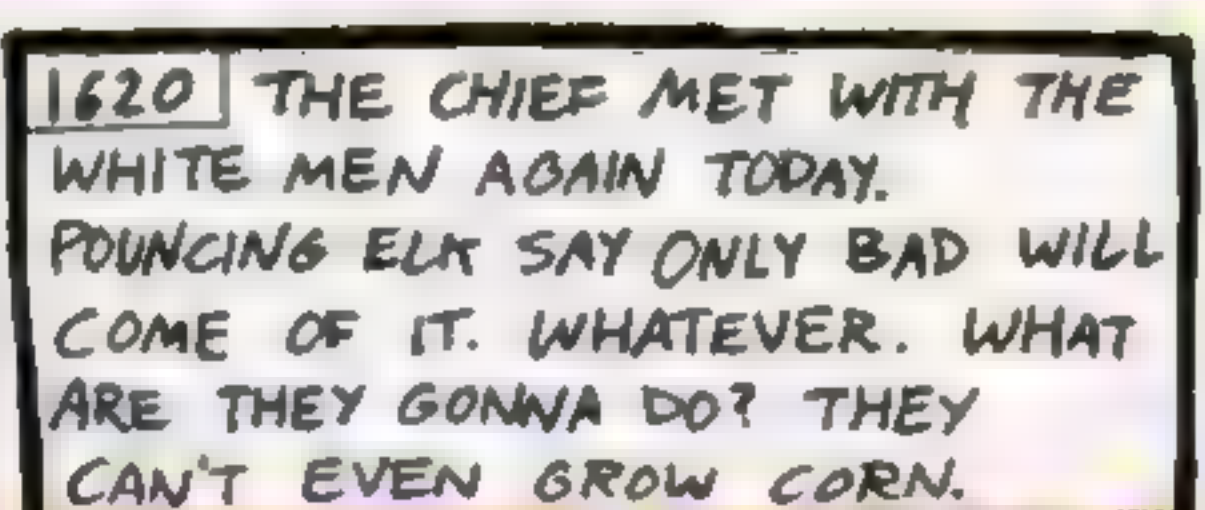 1620 THE CHIEF MET WITH THE
WHITE MEN AGAIN TODAY.
POUNCING ELK SAY ONLY BAD WILL
COME OF IT. WHATEVER. WHAT
ARE THEY GONNA DO? THEY
CAN'T EVEN GROW CORN.